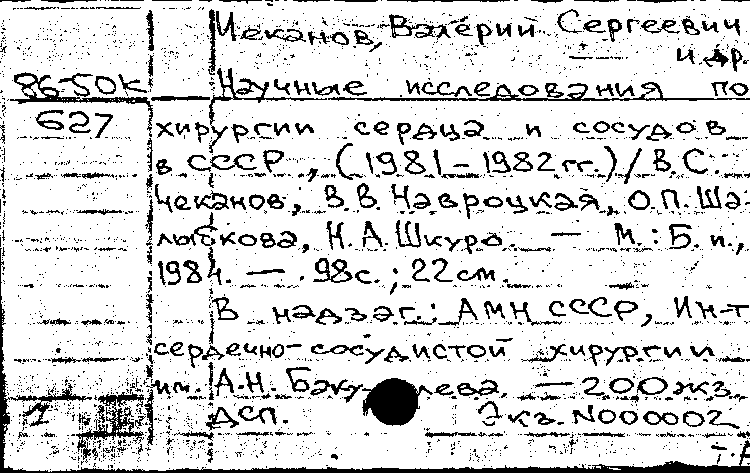 Чеканов, Валерий Сергеевич
и др.
86-50к Научные исследования по
627 хирургии сердца и сосудов
в СССР, (1981-1982 гг.) / В.С.
Чеканов, В.В. Навроцкая, О.П. Ша-
лыбкова, Н.А. Шкуро. — М.: Б. и.,
1984. — 98с.; 22см.
В надзаг.: АМН СССР, Ин-т
сердечно-сосудистой хирургии
им. А.Н. Бакулева. — 200экз.
1 ДСП. Экз. N000002